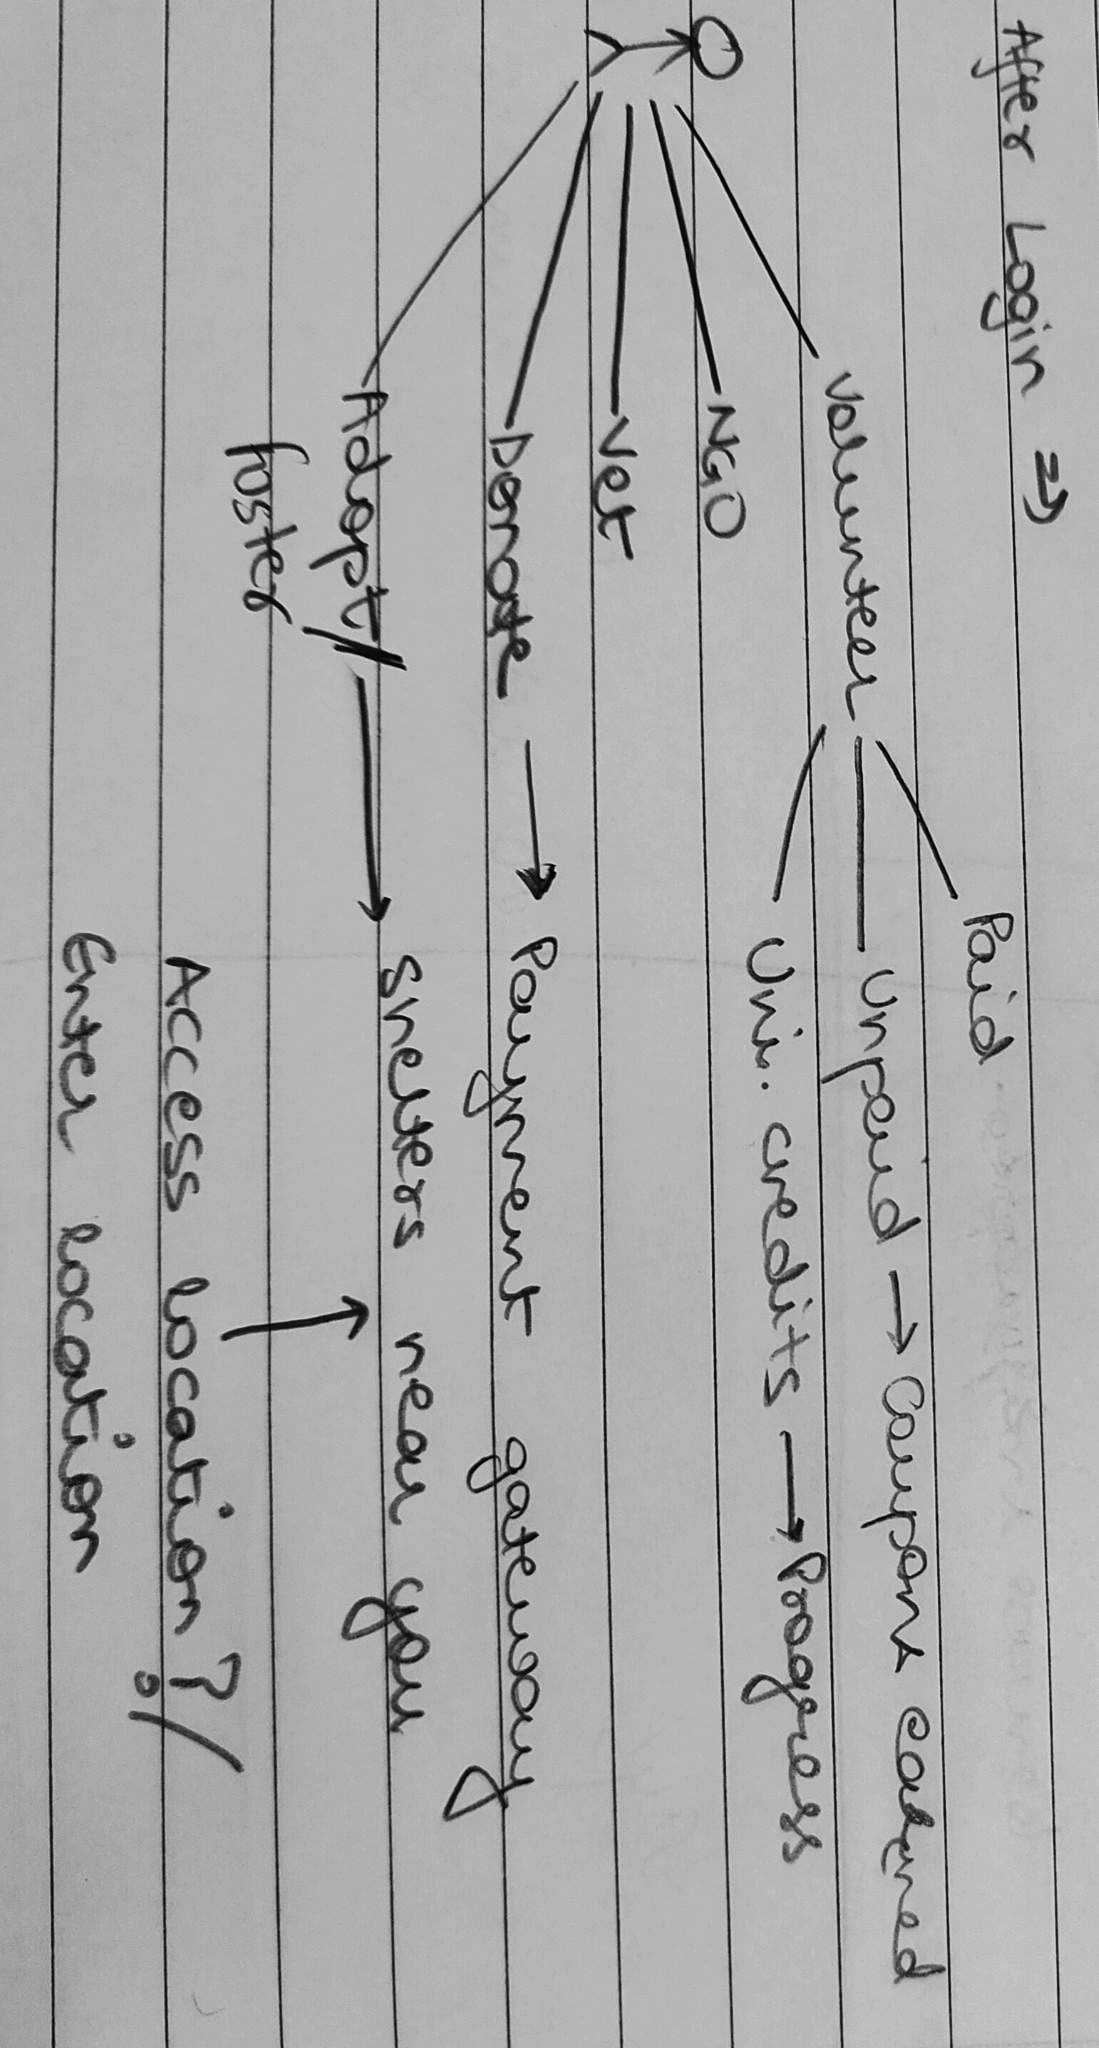 After Login ⇒
Paid
Volunteer
Unpaid → Coupons earned
Uni. credits → Progress
NGO
Vet
Donate → Payment gateway
Adopt/ → Shelters near you
foster
Access location?/
Enter location